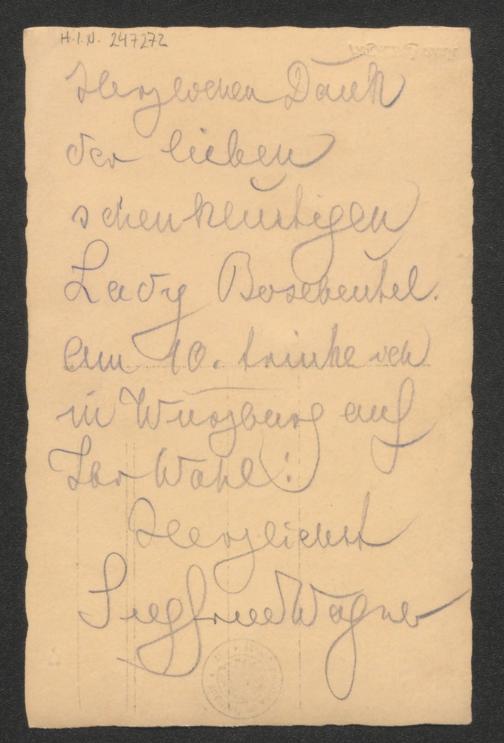 H.I.N. 247272
Herzlichen Dank
der lieben
schenklustigen
Lady Boxbeutel.
Am 10. trinke ich
in Würzburg auf
Ihr Wohl!
Herzlichst
Siegfried Wagner